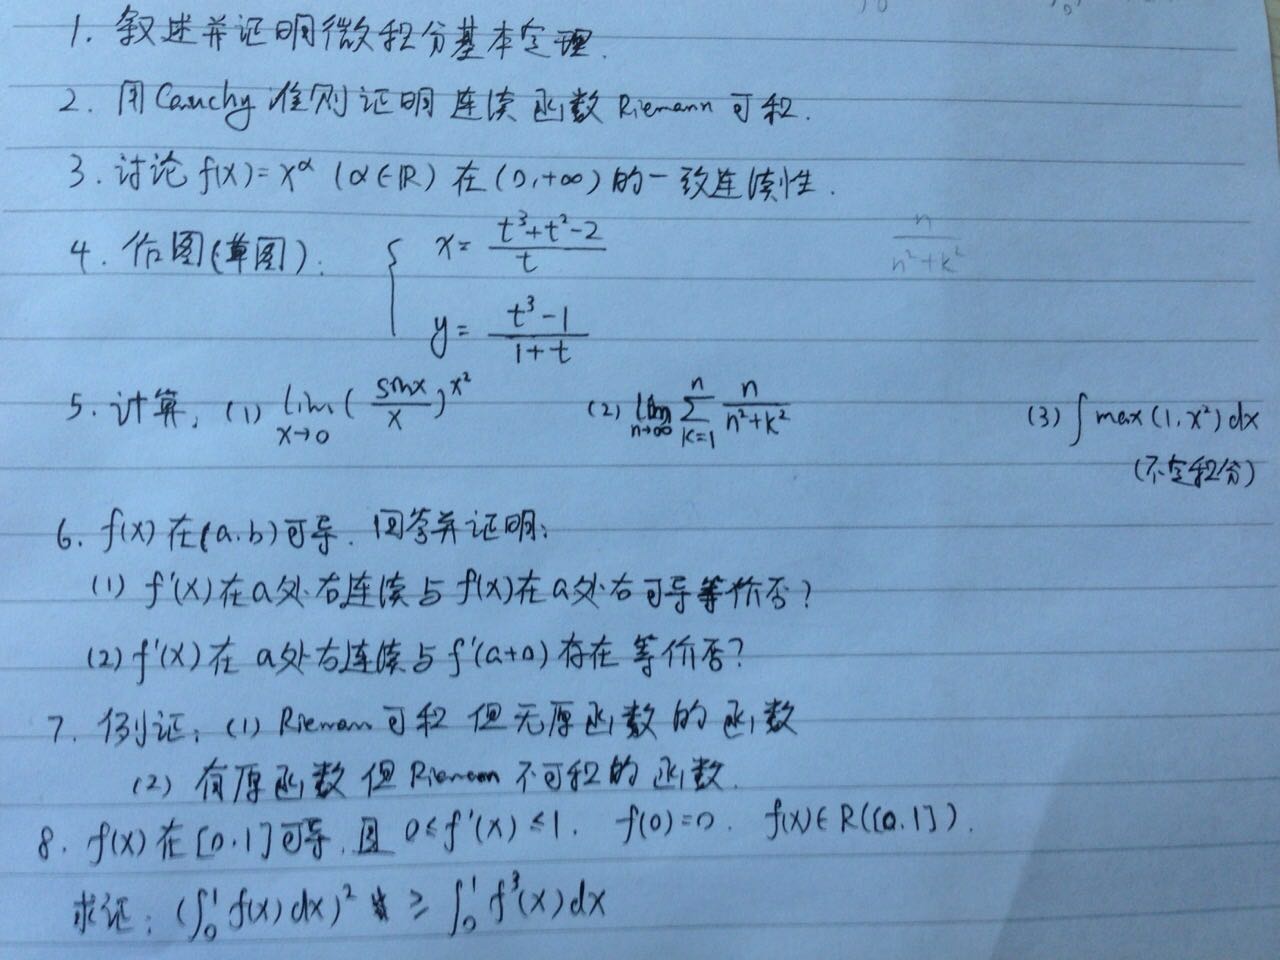 1. 叙述并证明微积分基本定理.
2. 用Cauchy准则证明连续函数Riemann可积.
3. 讨论 f(x)=x^α (α∈ℝ) 在(0,+∞)的一致连续性.
4. 作图(草图). { x= (t³+t²-2)/t
n/(n²+k²)
y= (t³-1)/(1+t)
5. 计算, (1) lim_{x→0} (sinx/x)^{x²} (2) lim_{n→∞} ∑_{k=1}^{n} n/(n²+k²) (3) ∫max(1,x²)dx
(不定积分)
6. f(x)在(a.b)可导. 回答并证明:
(1) f'(x)在a处右连续与f(x)在a处右可导等价否?
(2) f'(x)在a处右连续与f'(a+0)存在等价否?
7. 例证: (1) Riemann可积但无原函数的函数
(2) 有原函数但Riemann不可积的函数.
8. f(x)在[0.1]可导.且 0≤f'(x)≤1. f(0)=0. f(x)∈R([0.1]).
求证: (∫₀¹ f(x)dx)² ≥ ∫₀¹ f³(x)dx